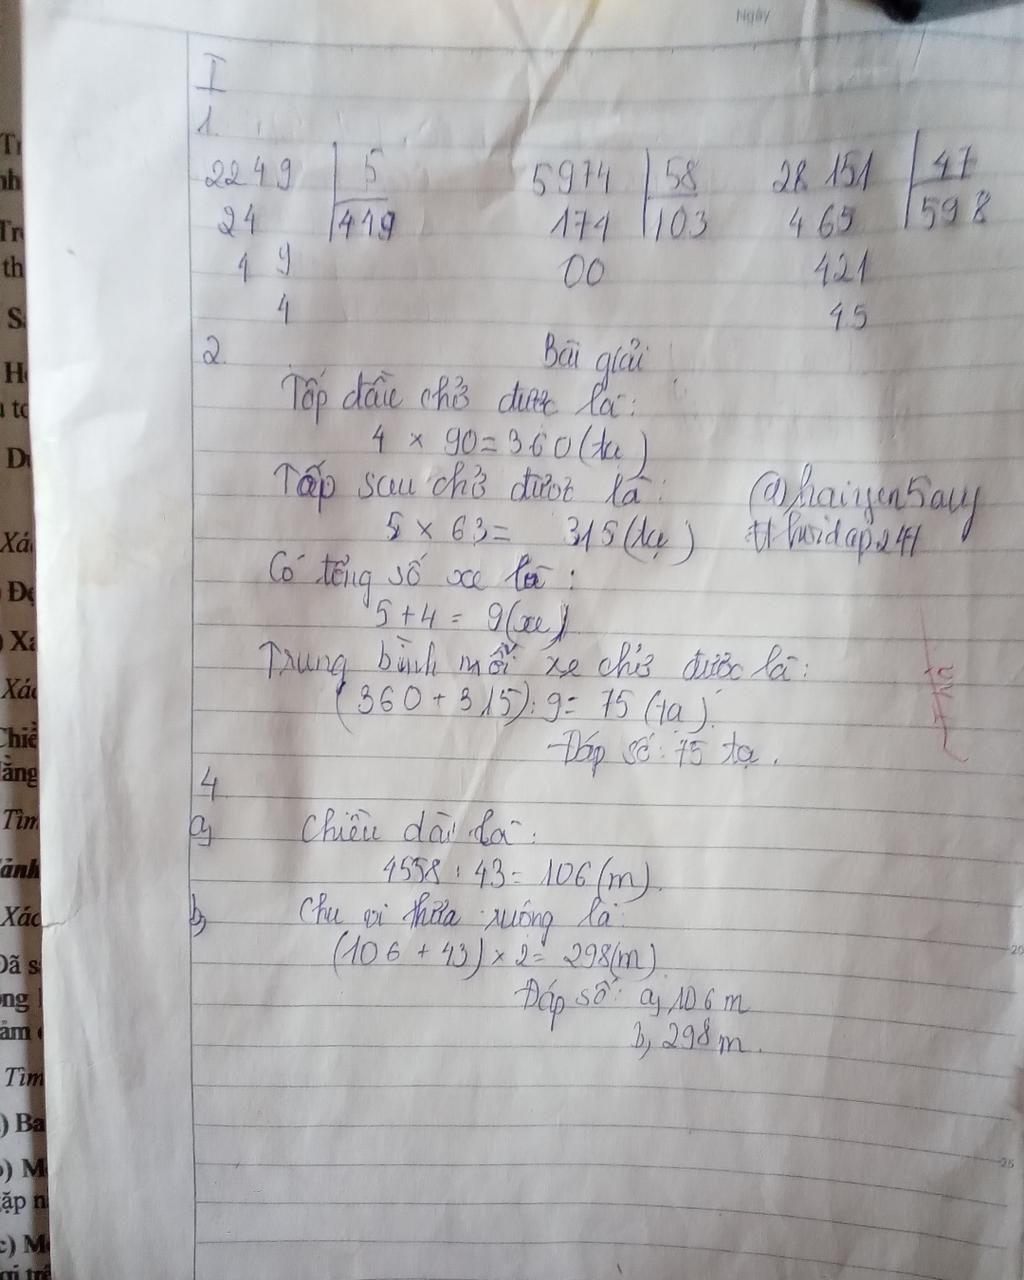 Ngày
I
1.
2249 5 5974 58 28 151 47
24 449 174 103 465 598
49 00 421
4 45
2. Bài giải
Tốp đầu chở được là:
4 × 90 = 360 (tạ)
Tốp sau chở được là:
5 × 63 = 315 (tạ)
@haiyen5auy
Có tổng số xe là:
5 + 4 = 9 (xe)
Trung bình mỗi xe chở được là:
(360 + 315) : 9 = 75 (tạ).
Đáp số: 75 tạ.
4
a, Chiều dài là:
4558 : 43 = 106 (m).
b, Chu vi thửa ruộng là:
(106 + 43) × 2 = 298 (m).
Đáp số: a, 106 m
b, 298 m.
20
25
Xác
Tìm
Xác
Tìm